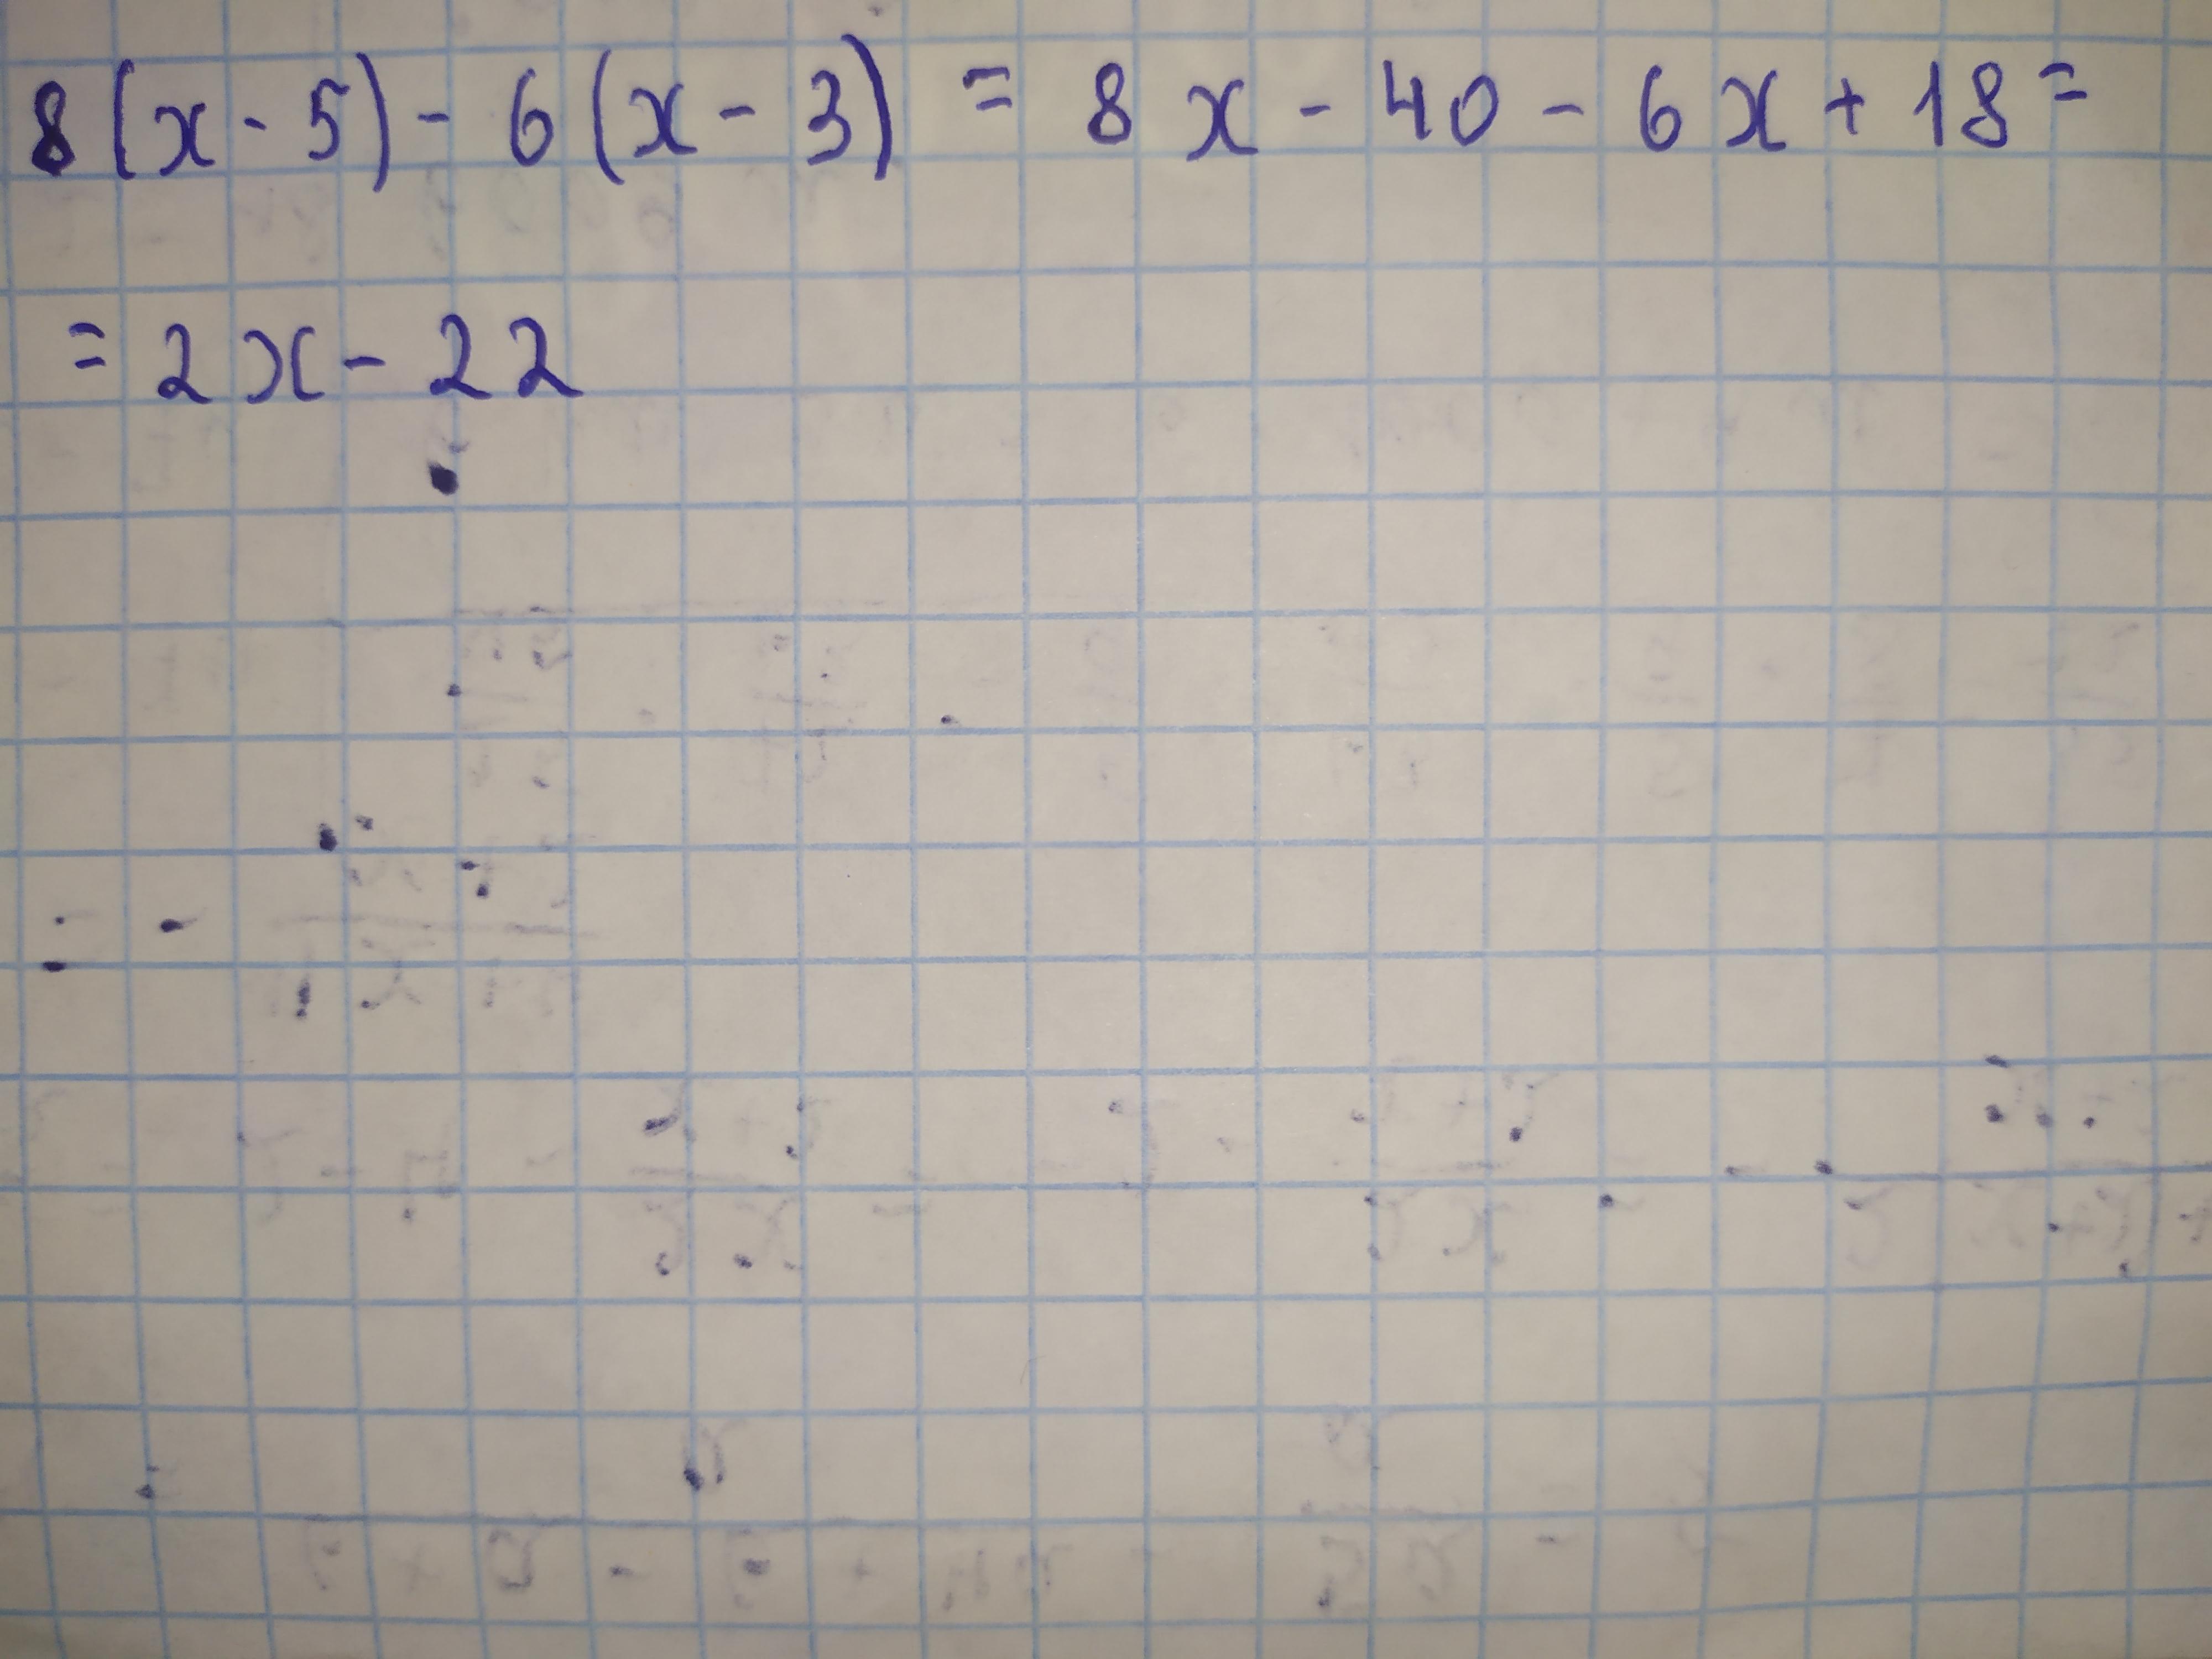 8(x-5)-6(x-3)=8x-40-6x+18=
=2x-22